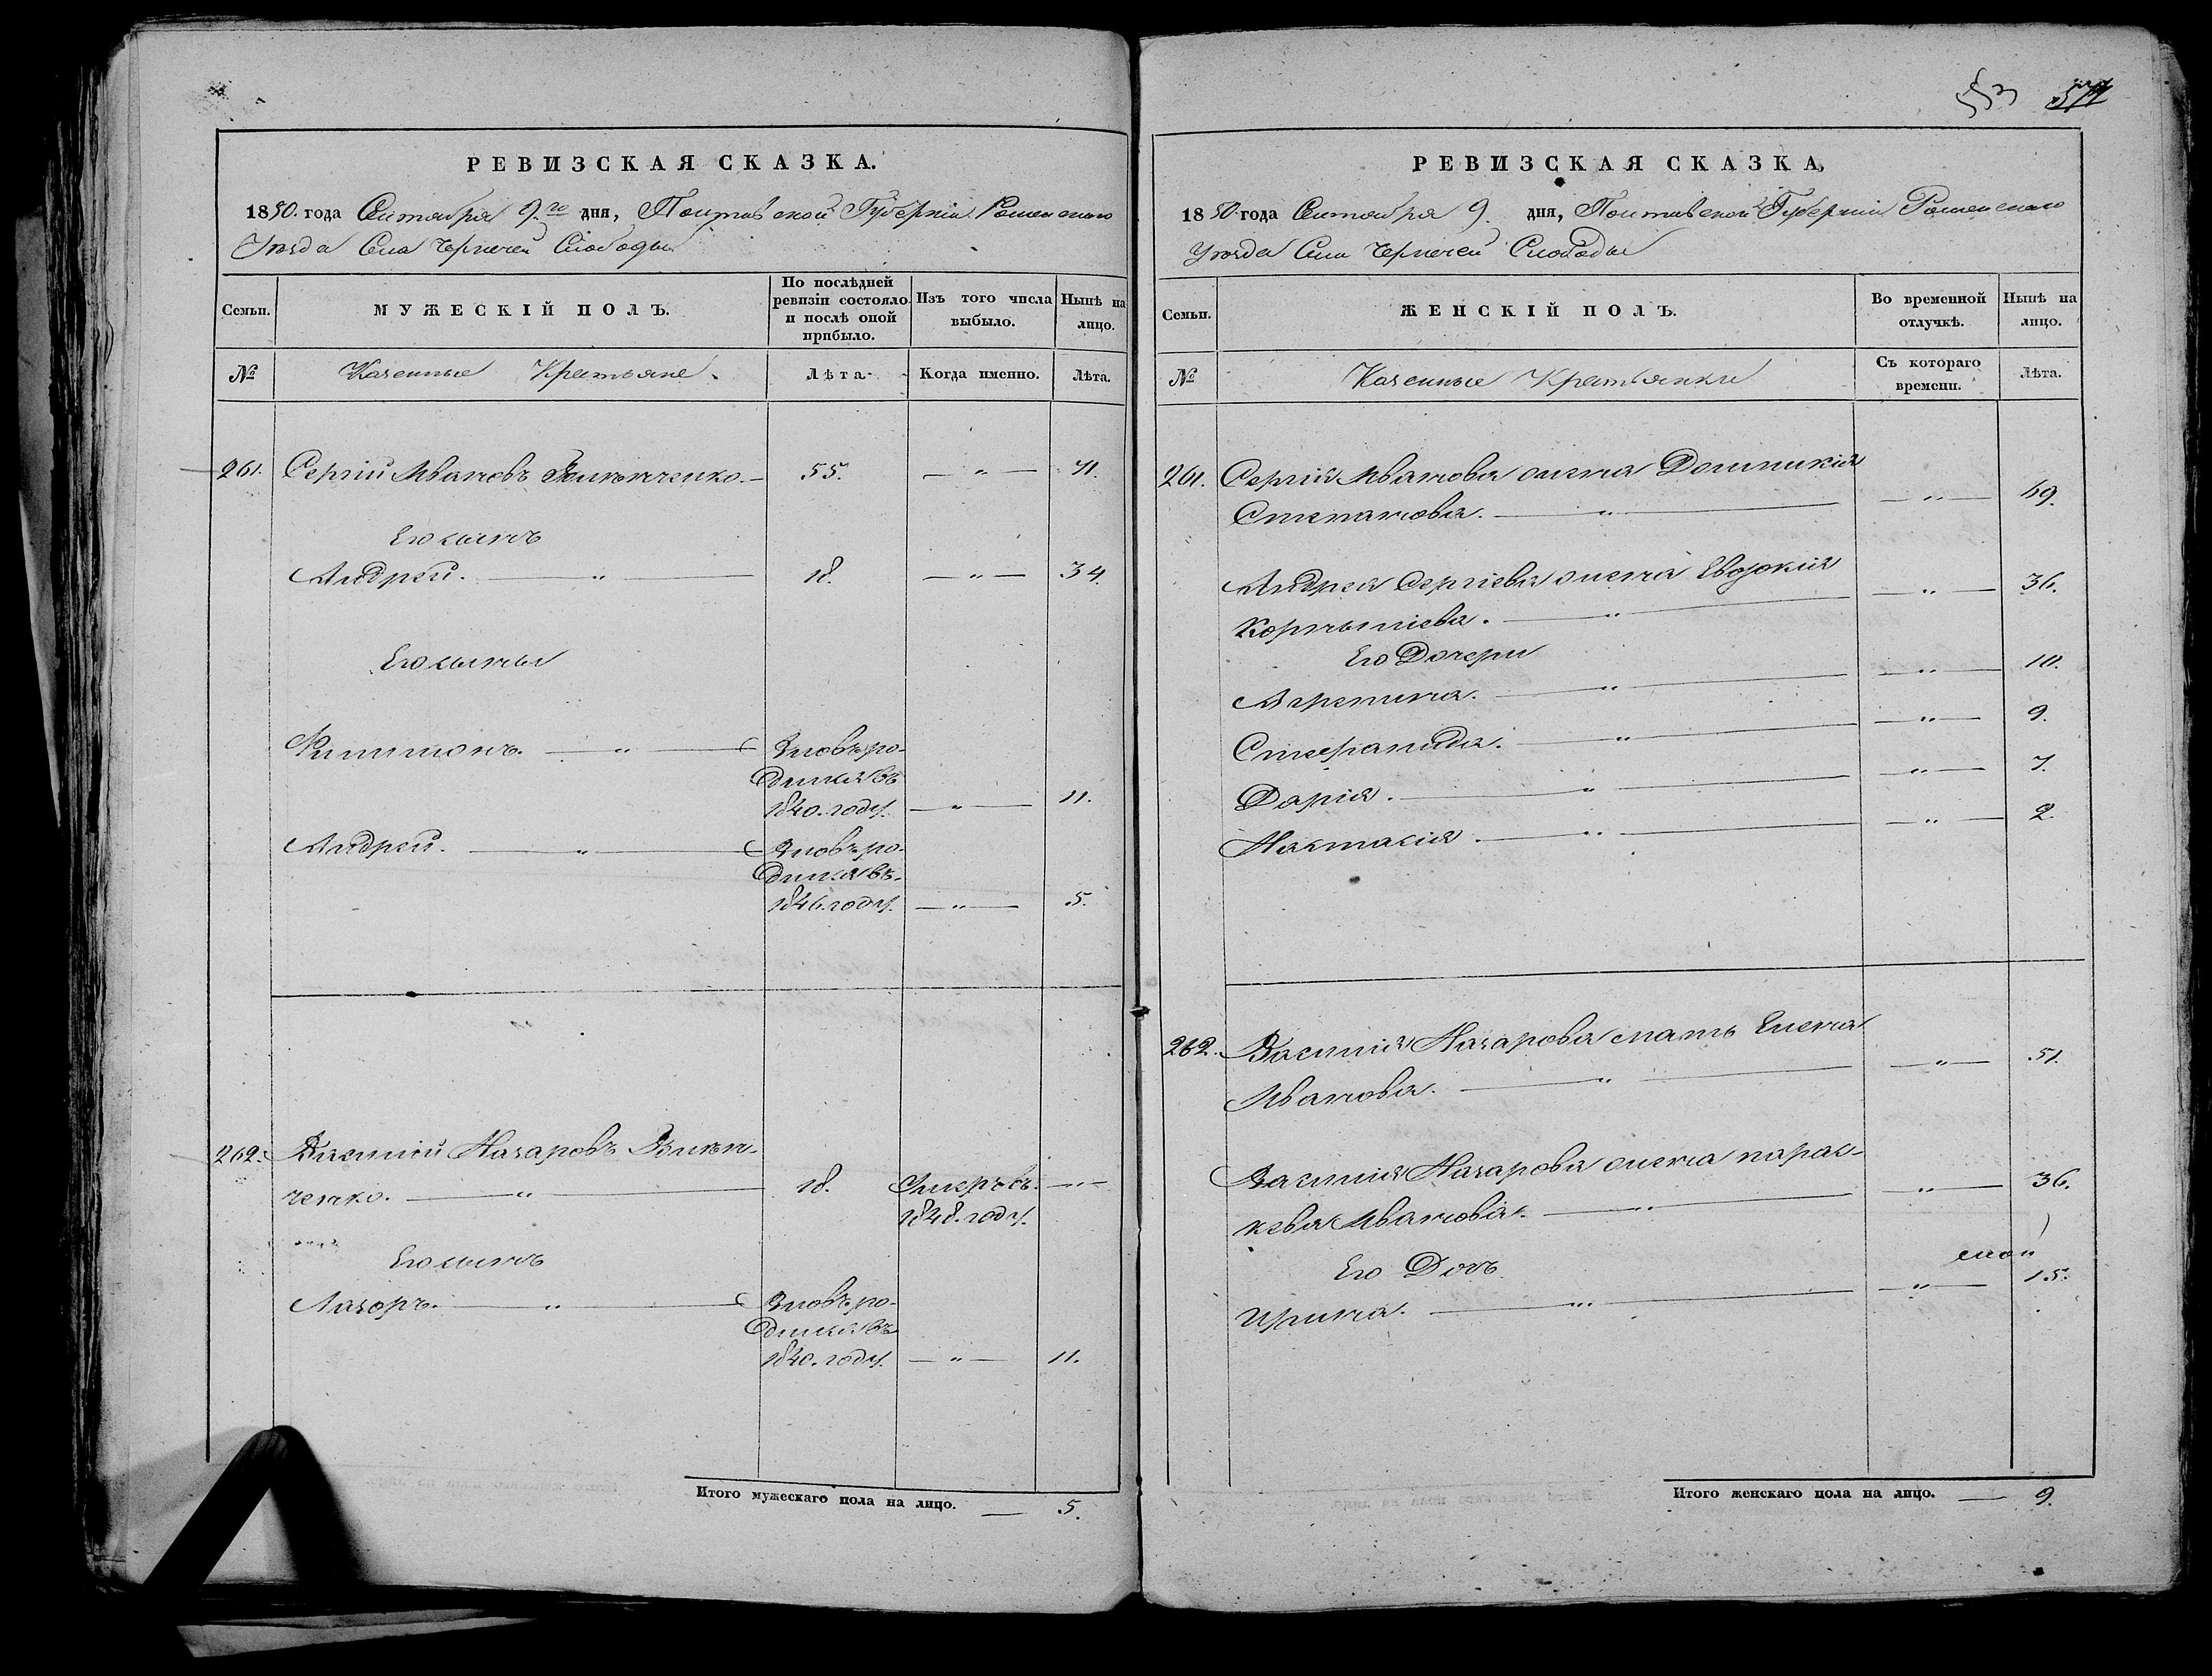 РЕВИЗСКАЯ СКАЗКА.
1850. года Сентября 9.го дня, Полтавской Губерніи Роменскаго
Уезда Села Чернечей Слободы
Семьи.
МУЖЕСКІЙ ПОЛЪ.
По послѣдней ревизіи состояло и послѣ оной прибыло.
Изъ того числа выбыло.
Нынѣ на лицо.
№
Казенные Крестьяне.
Лѣта.
Когда именно.
Лѣта.
261. Сергій Ивановъ 55. — " — 71.
Его сынъ
Андрей. — " — 18. — " — 34.
Его сыны
Филимонъ. — " — Вновь ро-
дился въ
1840. году. — " — 11.
Андрей. — " — Вновь ро-
дился въ
1846. году. — " — 5.
262. Василій Назаровъ
ченко. — " — 18. Умеръ въ — " —
1848. году.
Его сынъ
Лазорь. — " — Вновь ро-
дился въ
1840. году. — " — 11.
Итого мужескаго пола на лицо. — 5.
553 571
РЕВИЗСКАЯ СКАЗКА,
1850 года Сентября 9. дня, Полтавской Губерніи Роменскаго
Уезда Села Чернечей Слободы
Семьи.
ЖЕНСКІЙ ПОЛЪ.
Во временной отлучкѣ.
Нынѣ на лицо.
№
Казенные Крестьянки
Съ котораго времени.
Лѣта.
261. Сергія Иванова жена Домникія
Степанова. — " — — " — 69.
Андрея Сергіева жена Евдокія
Корныліева. — " — — " — 36.
Его Дочери
Агрепина. — " — — " — 10.
Стефанида. — " — — " — 9.
Дарія. — " — — " — 7.
Настасія. — " — — " — 2.
262. Василія Назарова мать Елена
Иванова. — " — — " — 51.
Василія Назарова жена парас-
кева Иванова. — " — — " — 36.
Его Дочь
Ирина. — " — — " — 15.
Итого женскаго пола на лицо. — 9.